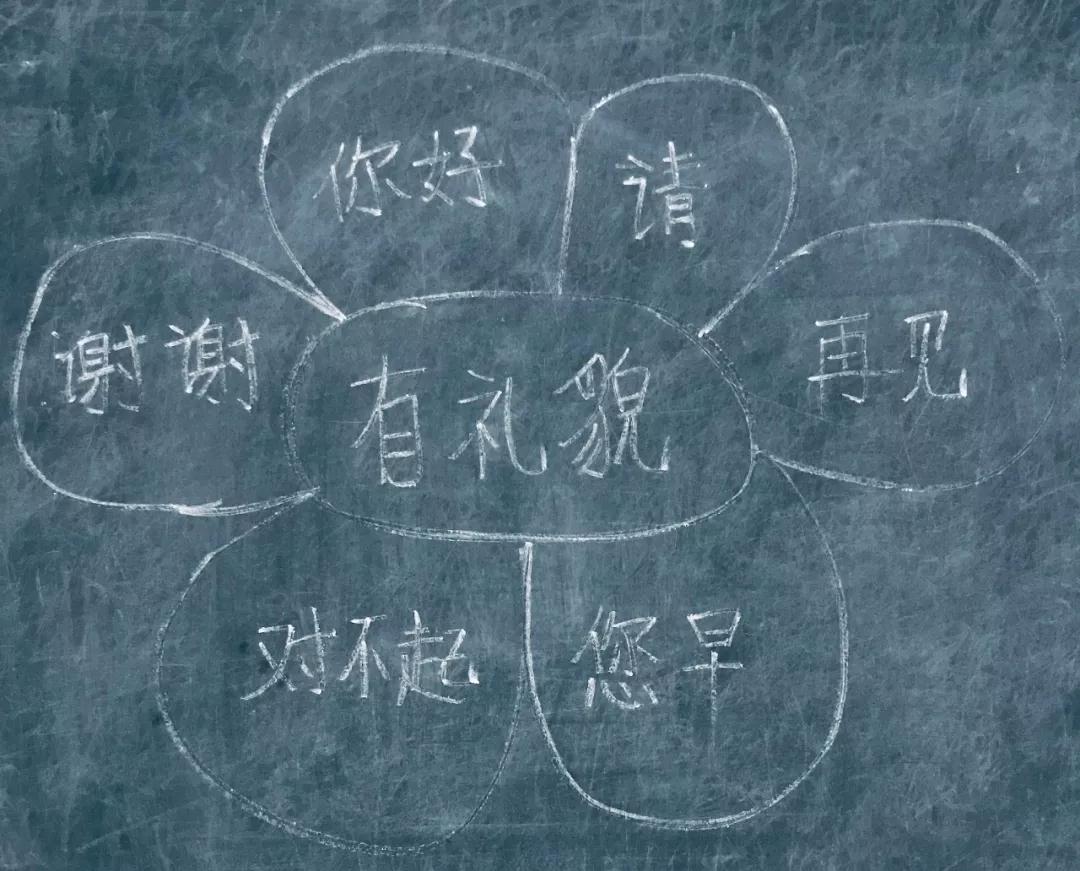 你好
请
谢谢
有礼貌
再见
对不起
您早